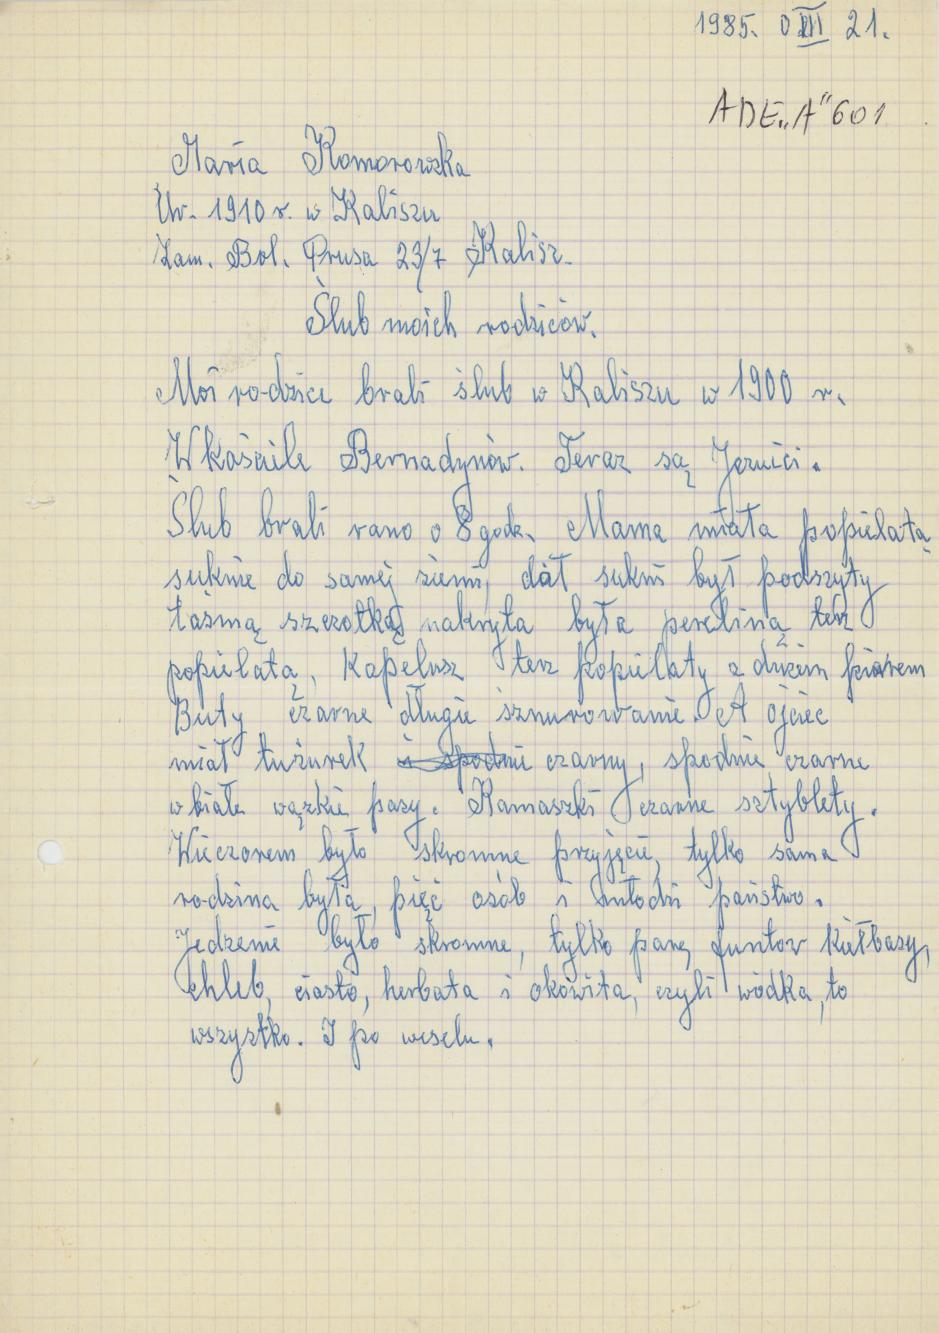 1985. 0III 21.
ADE „A" 601
Maria Komorowska
Ur. 1910 r. w Kaliszu
Zam. Bol. Prusa 23/7 Kalisz.
Ślub moich rodziców.
Moi rodzice brali ślub w Kaliszu w 1900 r.
W kościele Bernadynów. Teraz są Jezuici.
Ślub brali rano o 8 godz. Mama miała popielatą
suknie do samej ziemi, dół sukni był podszyty
taśmą szczotką nakryta była pereliną też
popielatą, Kapelusz też popielaty z dużem piórem
Buty czarne długie sznurowanie. A ojciec
miał tużurek i spodnie czarny, spodnie czarne
w białe wązkie pasy. Kamaszki czarne sztyblety.
Wieczorem było skromne przyjęcie, tylko sama
rodzina była, pięć osób i młodzi państwo.
Jedzenie było skromne, tylko parę funtów kiełbasy,
chleb, ciasto, herbata i okowita, czyli wódka, to
wszystko. I po weselu.